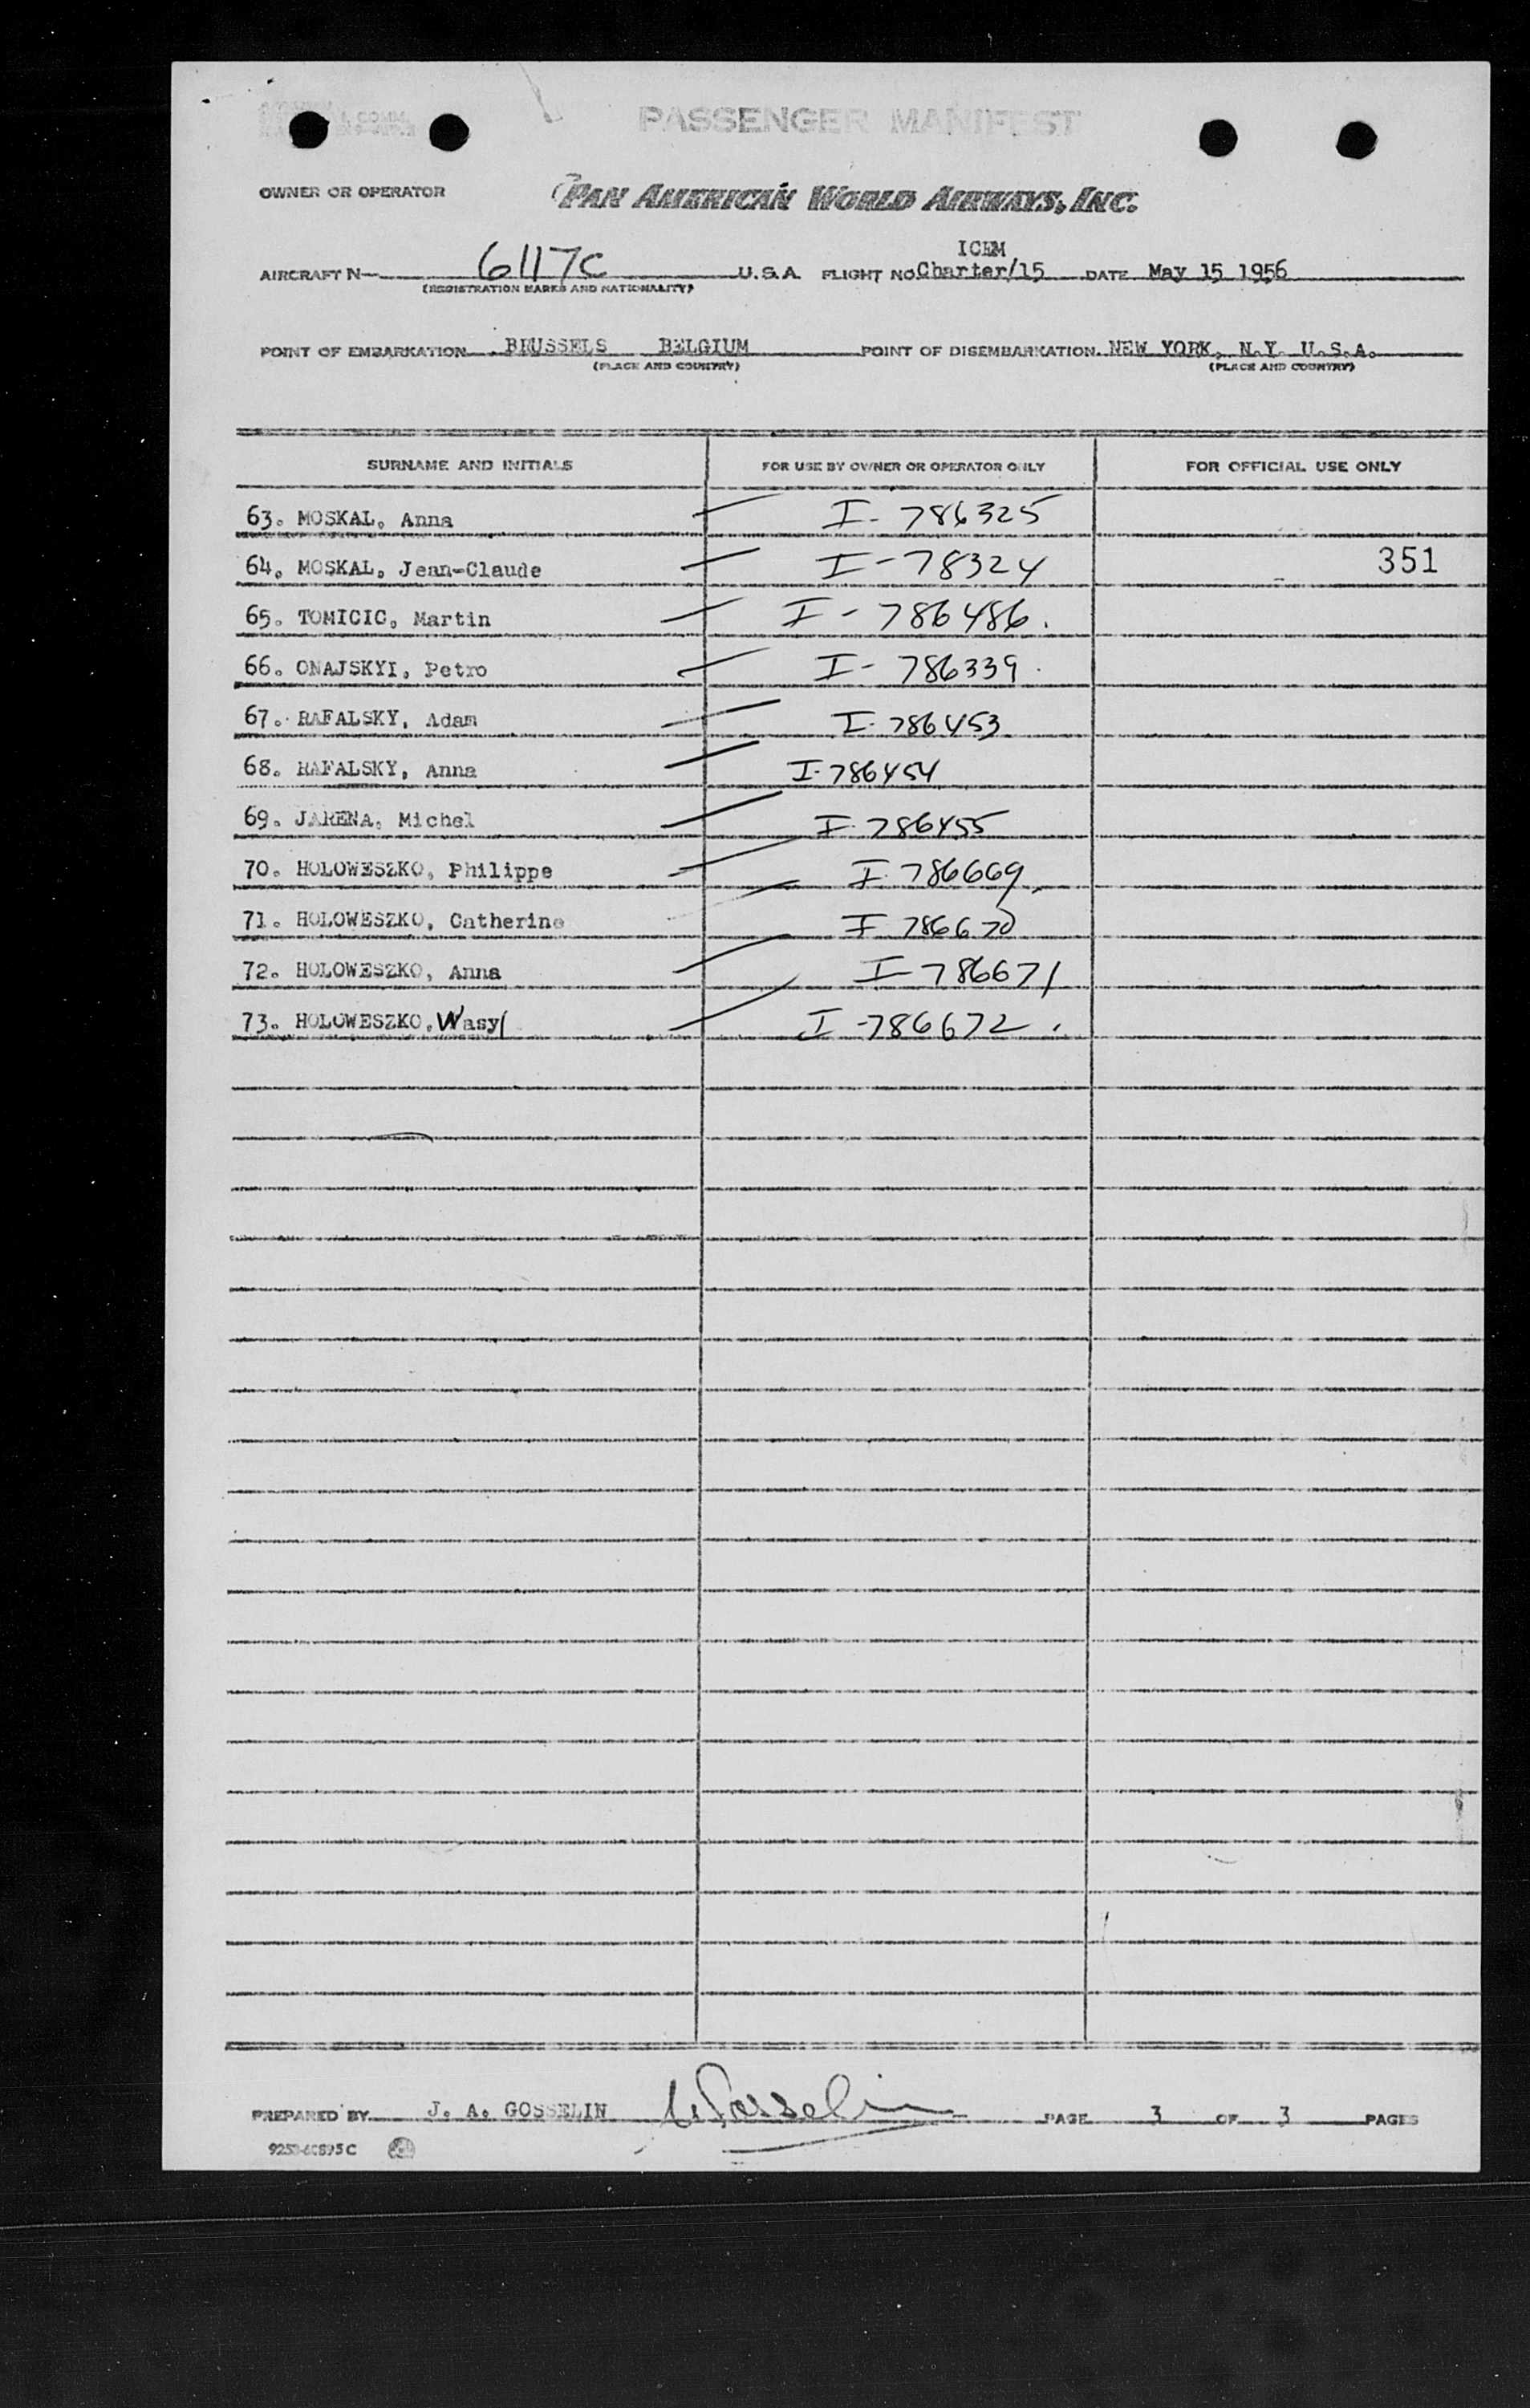 PASSENGER MANIFEST
OWNER OR OPERATOR PAN AMERICAN WORLD AIRWAYS, INC.
ICEM
AIRCRAFT N 6117C U.S.A. FLIGHT NO. Charter/15 DATE May 15 1956
(REGISTRATION MARKS AND NATIONALITY)
POINT OF EMBARKATION BRUSSELS BELGIUM POINT OF DISEMBARKATION NEW YORK, N.Y. U.S.A.
(PLACE AND COUNTRY) (PLACE AND COUNTRY)
SURNAME AND INITIALS FOR USE BY OWNER OR OPERATOR ONLY FOR OFFICIAL USE ONLY
63. MOSKAL, Anna I-786325
64. MOSKAL, Jean-Claude I-78324 351
65. TOMICIC, Martin I-786486.
66. ONAJSKYI, Petro I-786339.
67. RAFALSKY, Adam I-786453
68. RAFALSKY, Anna I-786454
69. JARENA, Michel I-786455
70. HOLOWESZKO, Philippe I-786669
71. HOLOWESZKO, Catherine I 786670
72. HOLOWESZKO, Anna I-786671
73. HOLOWESZKO, Wasyl I-786672.
PREPARED BY J. A. GOSSELIN Gosselin PAGE 3 OF 3 PAGES